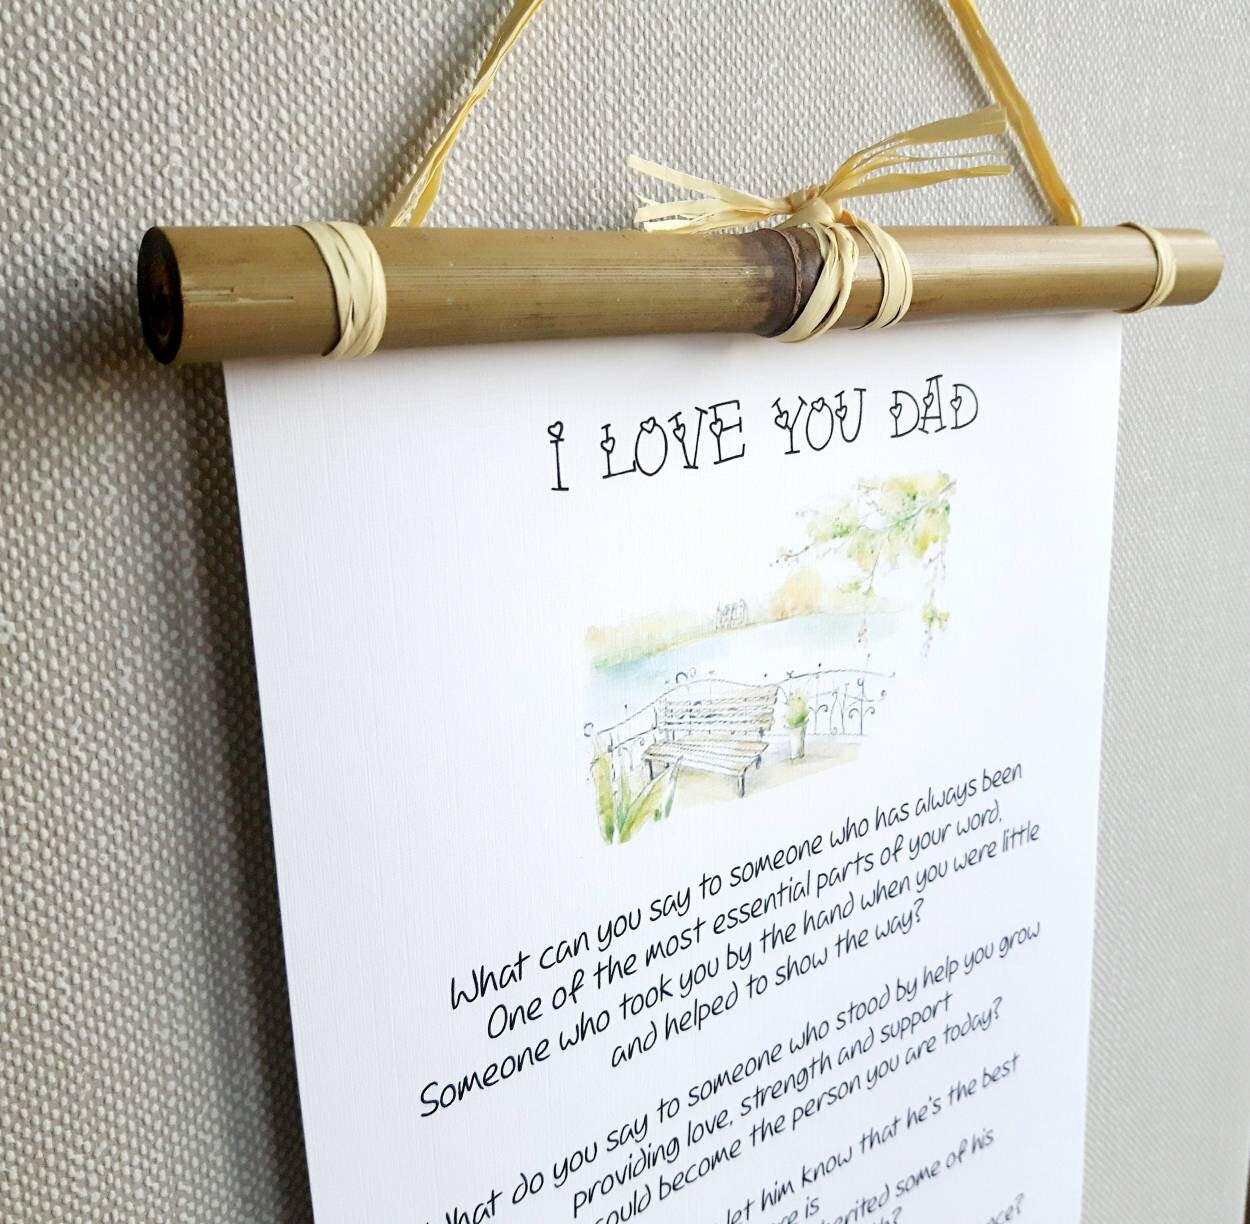 I LOVE YOU DAD
What can you say to someone who has always been
One of the most essential parts of your word,
Someone who took you by the hand when you were little
and helped to show the way?
What do you say to someone who stood by help you grow
providing love, strength and support
could become the person you are today?
let him know that he's the best
is
some of his